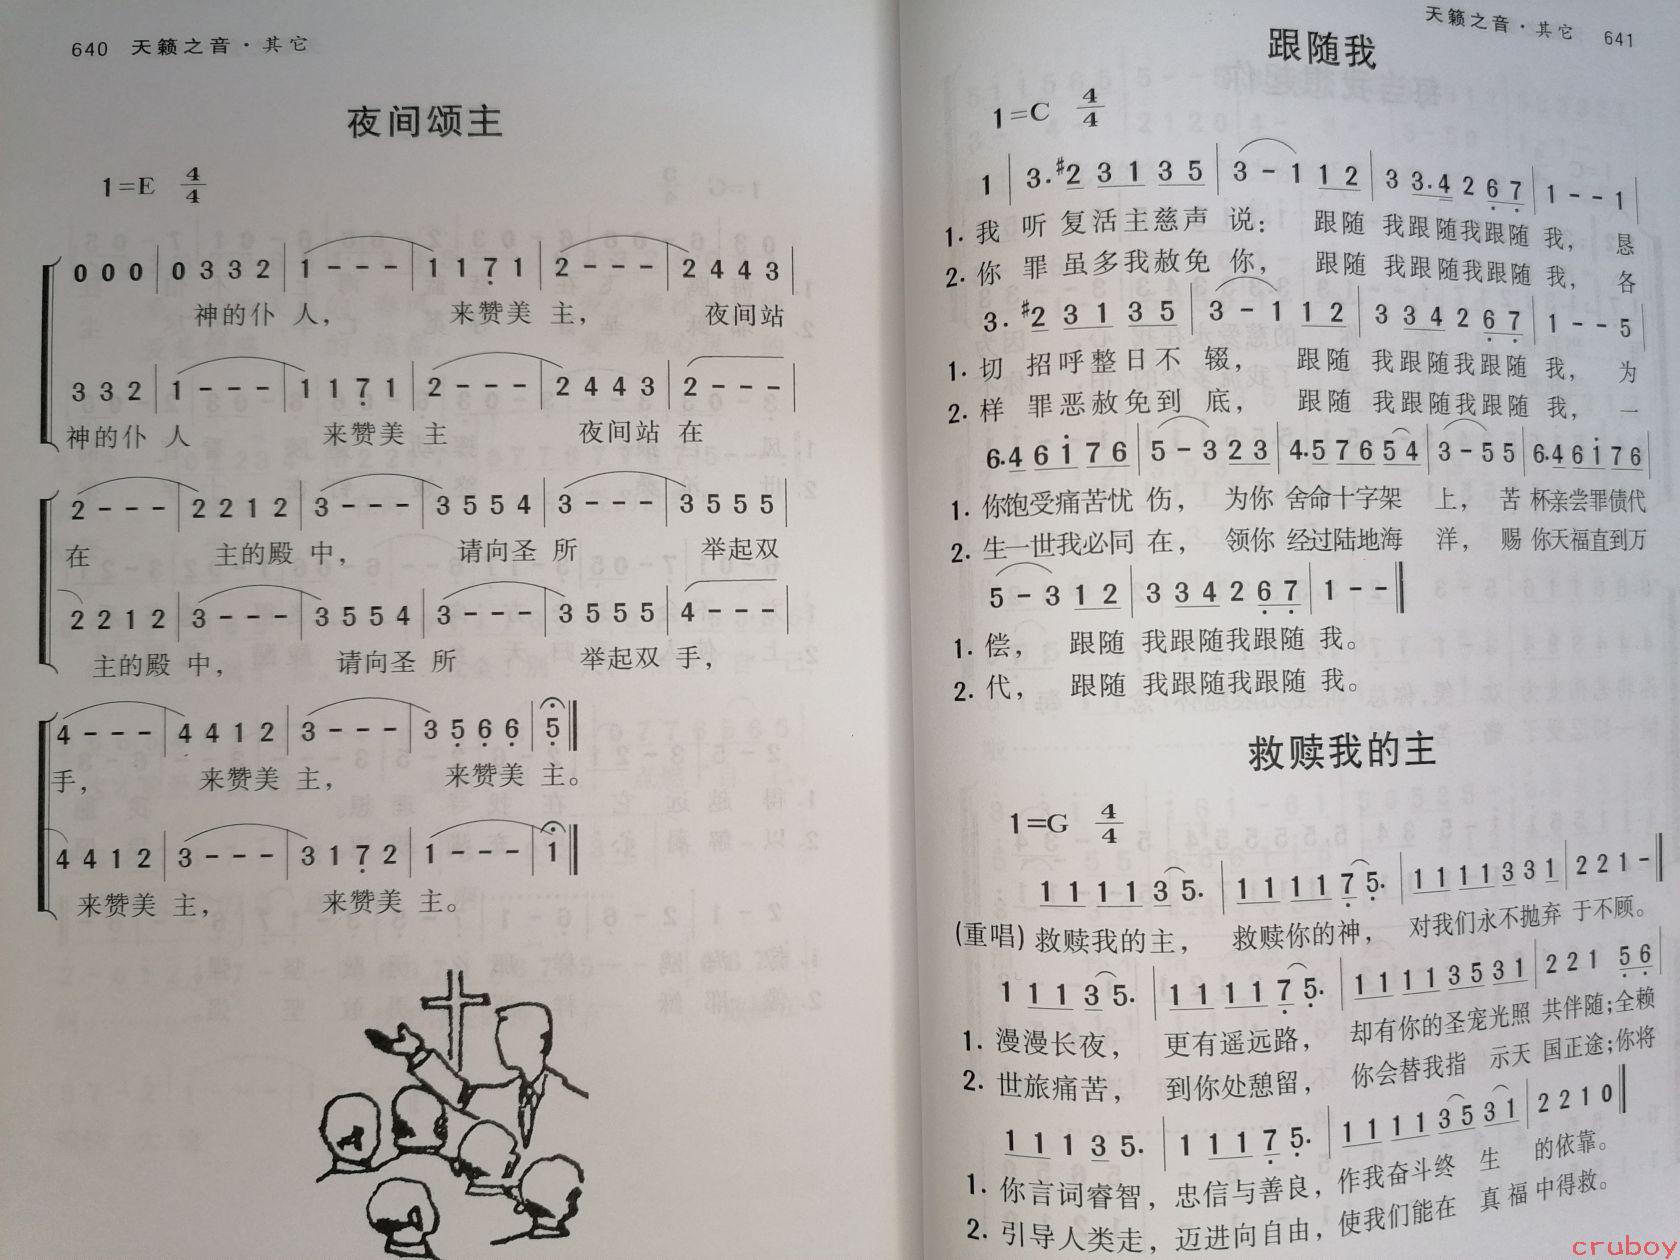 640 天籁之音·其它
夜间颂主
1=E 4/4
0 0 0 | 0 3 3 2 | 1 - - - | 1 1 7 1 | 2 - - - | 2 4 4 3 |
神的仆 人， 来赞美 主， 夜间站
3 3 2 | 1 - - - | 1 1 7 1 | 2 - - - | 2 4 4 3 | 2 - - - |
神的仆 人 来赞美 主 夜间站 在
2 - - - | 2 2 1 2 | 3 - - - | 3 5 5 4 | 3 - - - | 3 5 5 5 |
在 主的殿 中， 请向圣 所 举起双
2 2 1 2 | 3 - - - | 3 5 5 4 | 3 - - - | 3 5 5 5 | 4 - - - |
主的殿 中， 请向圣 所 举起双 手，
4 - - - | 4 4 1 2 | 3 - - - | 3 5 6 6 | 5 ‖
手， 来赞美 主， 来赞美 主。
4 4 1 2 | 3 - - - | 3 1 7 2 | 1 - - - | 1 ‖
来赞美 主， 来赞美 主。
天籁之音·其它 641
跟随我
1=C 4/4
1 | 3. #2 3 1 3 5 | 3 - 1 1 2 | 3 3. 4 2 6 7 | 1 - - 1 |
1. 我 听 复活主慈声 说： 跟随 我跟随我跟随 我， 恳
2. 你 罪 虽多我赦免 你， 跟随 我跟随我跟随 我， 各
3. #2 3 1 3 5 | 3 - 1 1 2 | 3 3 4 2 6 7 | 1 - - 5 |
1. 切 招呼整日不 辍， 跟随 我跟随我跟随 我， 为
2. 样 罪恶赦免到 底， 跟随 我跟随我跟随 我， 一
6. 4 6 i 7 6 | 5 - 3 2 3 | 4. 5 7 6 5 4 | 3 - 5 5 | 6. 4 6 i 7 6 |
1. 你饱受痛苦忧 伤， 为你 舍命十字架 上， 苦 杯亲尝罪债代
2. 生一世我必同 在， 领你 经过陆地海 洋， 赐 你天福直到万
5 - 3 1 2 | 3 3 4 2 6 7 | 1 - - ‖
1. 偿， 跟随 我跟随我跟随 我。
2. 代， 跟随 我跟随我跟随 我。
救赎我的主
1=G 4/4
1 1 1 1 3 5. | 1 1 1 1 7 5. | 1 1 1 1 3 3 1 | 2 2 1 - ‖
(重唱) 救赎我的主， 救赎你的神， 对我们永不抛弃 于不顾。
1 1 1 3 5. | 1 1 1 1 7 5. | 1 1 1 1 3 5 3 1 | 2 2 1 5 6 |
1. 漫漫长夜， 更有遥远路， 却有你的圣宠光照 共伴随；全赖
2. 世旅痛苦， 到你处憩留， 你会替我指 示天 国正途；你将
1 1 1 3 5. | 1 1 1 7 5. | 1 1 1 1 3 5 3 1 | 2 2 1 0 ‖
1. 你言词睿智，忠信与善良，作我奋斗终 生 的依靠。
2. 引导人类走，迈进向自由，使我们能在 真 福中得救。
cruboy